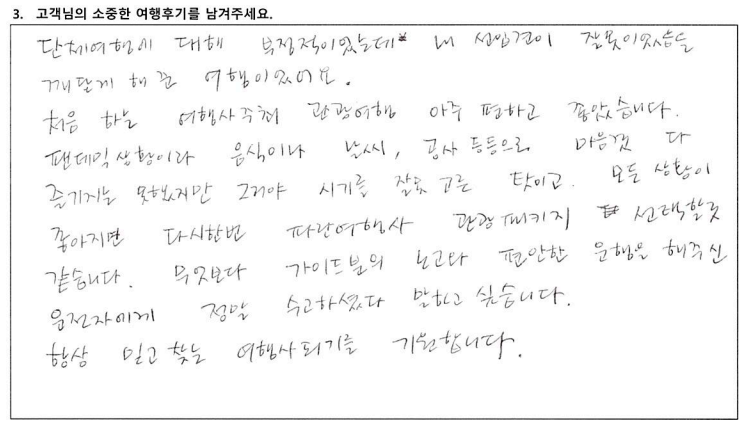 3. 고객님의 소중한 여행후기를 남겨주세요.
단체여행에 대해 부정적이었는데 내 선입견이 잘못이었음을
깨닫게 해 준 여행이었어요.
처음 하는 여행사주최 관광여행 아주 편하고 좋았습니다.
팬데믹상황이라 음식이나 날씨, 공사 등등으로 마음껏 다
즐기지는 못했지만 그거야 시기를 잘못 고른 탓이고. 모든 상황이
좋아지면 다시한번 파란여행사 관광패키지 선택할것
같습니다. 무엇보다 가이드분의 노고와 편안한 운행을 해주신
운전자에게 정말 수고하셨다 말하고 싶습니다.
항상 믿고 찾는 여행사되기를 기원합니다.